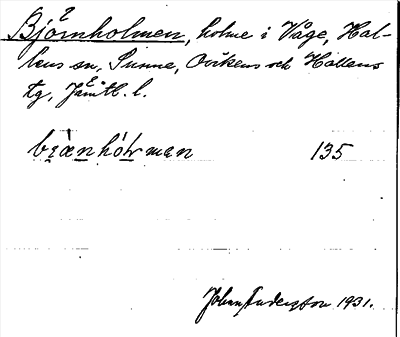 Björnholmen, holme i Våge, Hal-
lens sn, Sunne, Ovikens och Hallens
tg, Jämtl. l.
bi̯ànhól̯mæn 135
Johan Anderzson 1931.